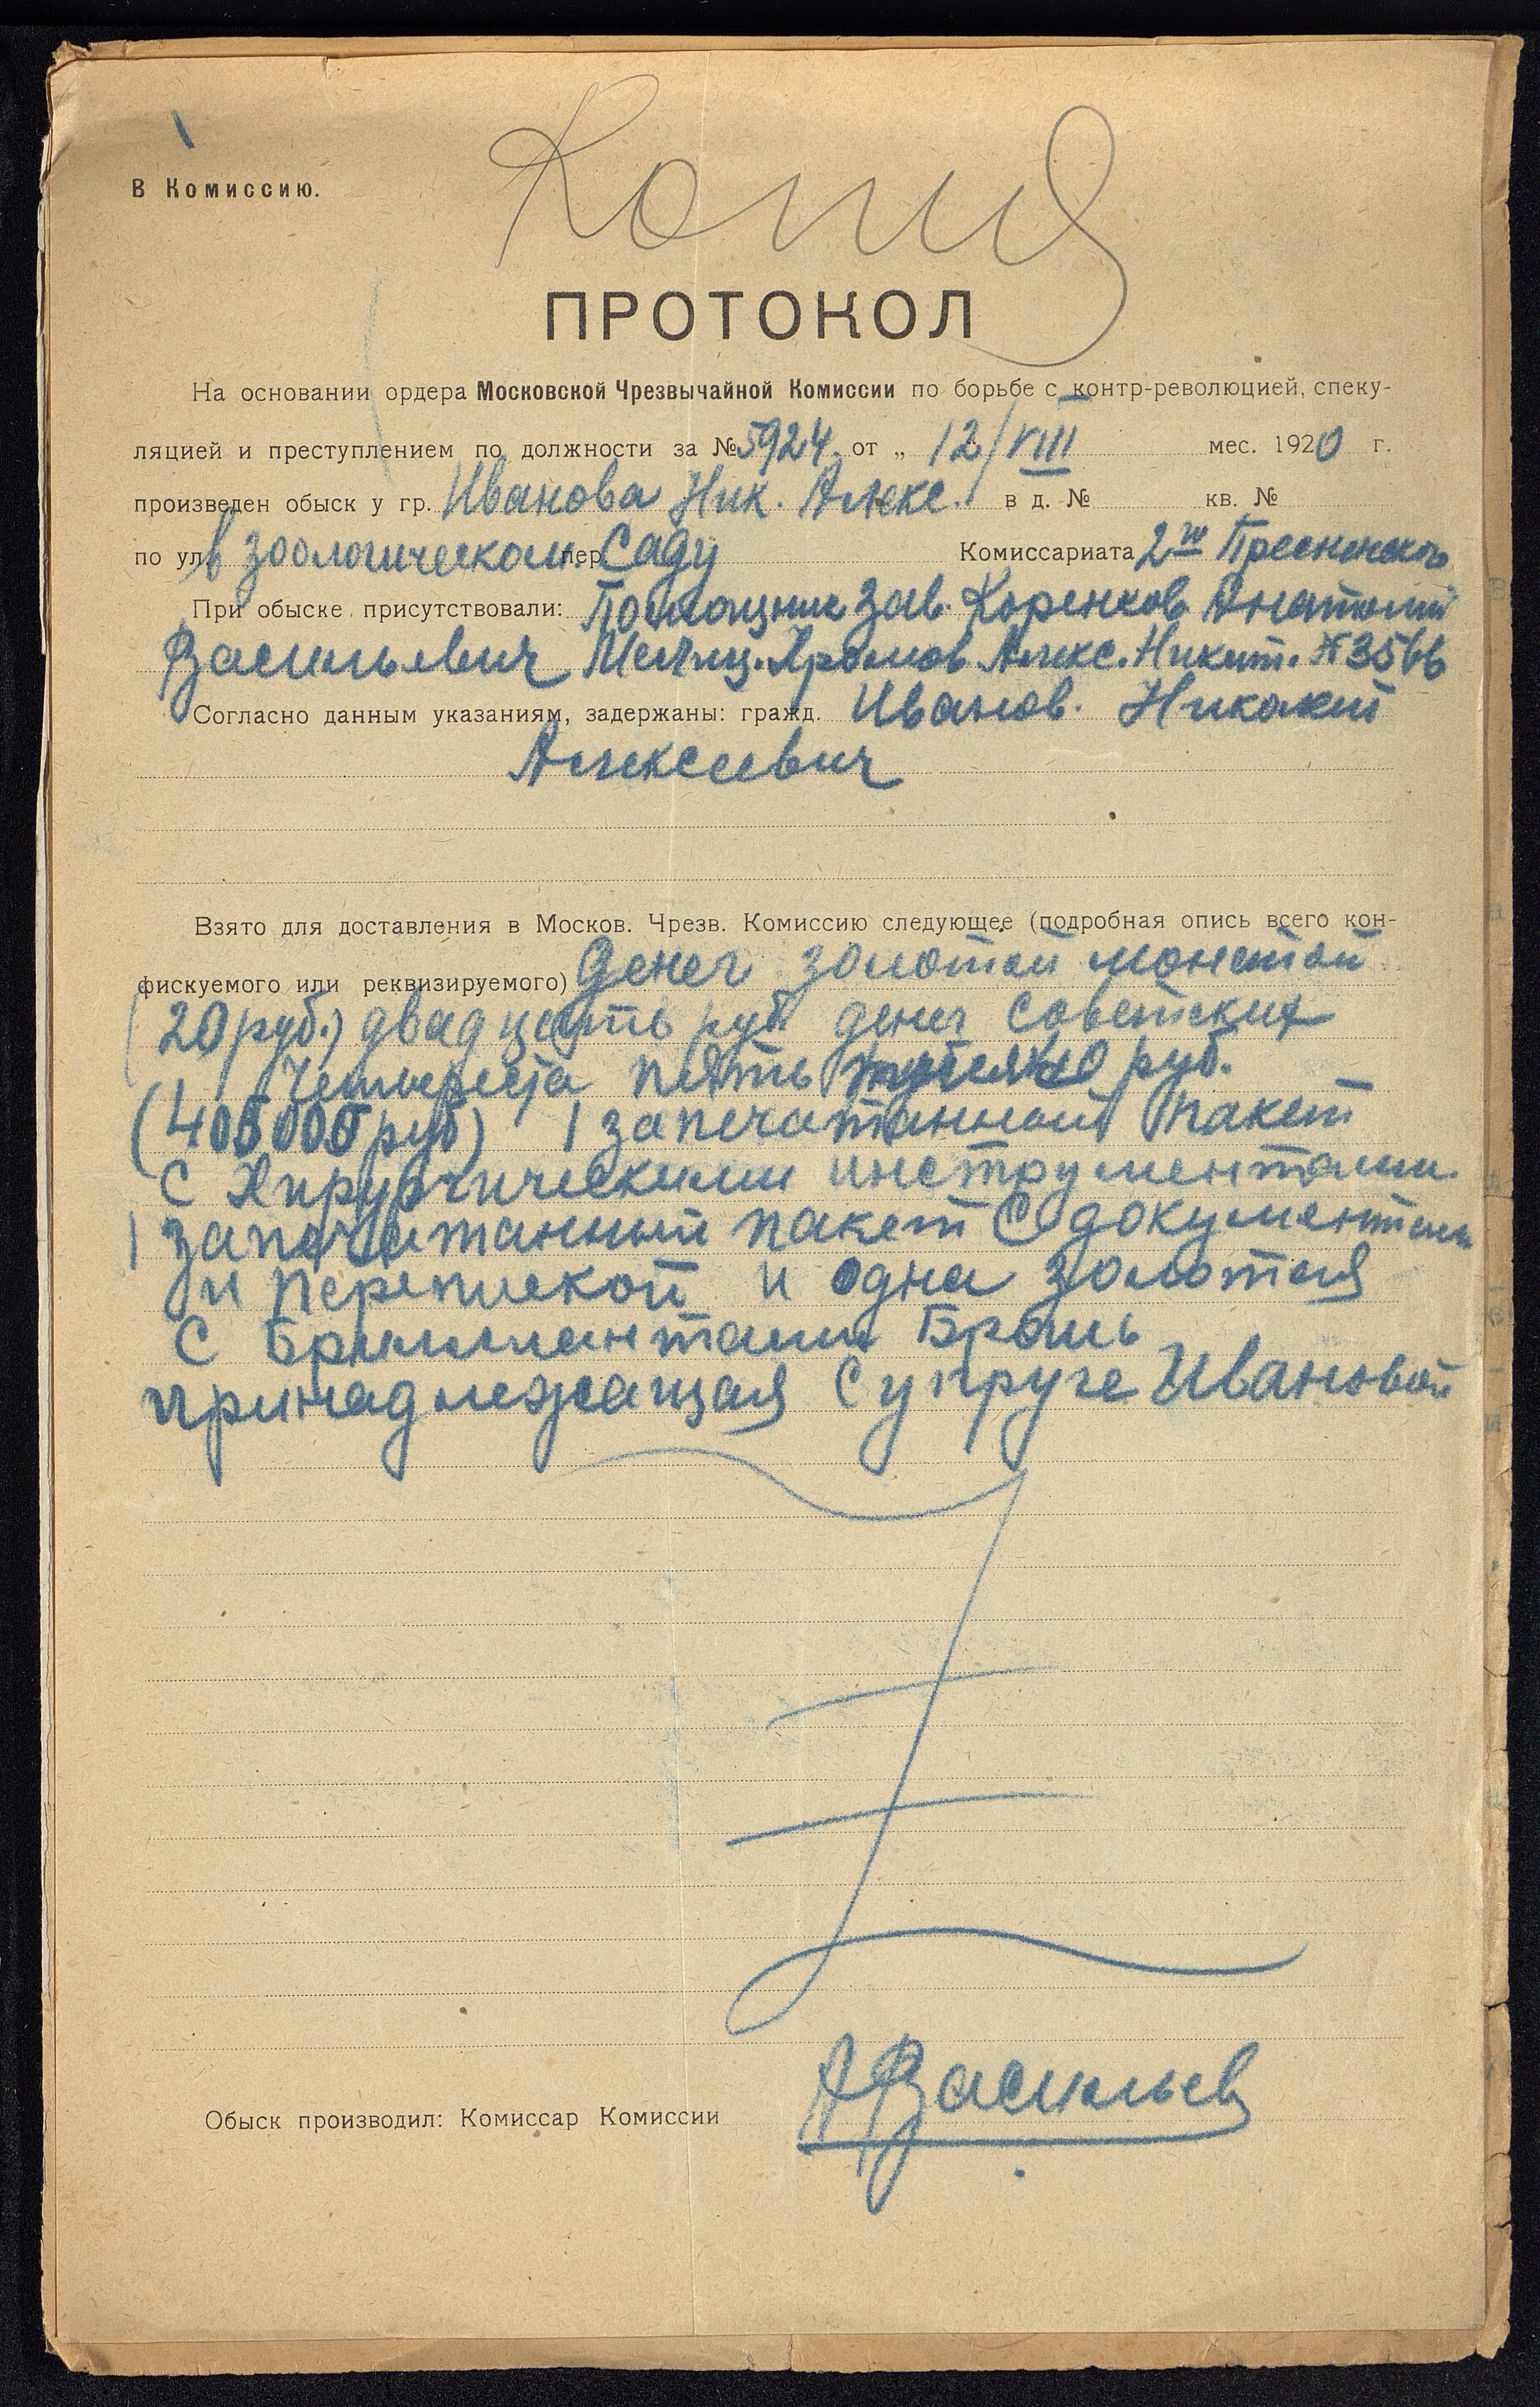 Копия
В Комиссию.
ПРОТОКОЛ
На основании ордера Московской Чрезвычайной Комиссии по борьбе с контр-революцией, спеку-
ляцией и преступлением по должности за № 5924 от „ 12/VIII мес. 1920 г.
произведен обыск у гр. Иванова Ник. Алекс. в д. № кв. №
по ул. в Зоологическом пер. Саду Комиссариата 2го Пресненского
При обыске присутствовали: Помощник Зав. Коренков Анатолий
Васильевич Милиц. Хромов Алекс. Никит. № 3566
Согласно данным указаниям, задержаны: гражд. Иванов. Николай
Алексеевич
Взято для доставления в Москов. Чрезв. Комиссию следующее (подробная опись всего кон-
фискуемого или реквизируемого) Денег золотой монетой
(20 руб.) двадцать руб. денег советских
Четыреста пять руб.
1 запечатанный пакет
с Хирургическими инструментами.
1 запечатанный пакет с документами
и перепиской и одна золотая
с Бриллиантами Брошь
принадлежащая супруге Ивановой
Обыск производил: Комиссар Комиссии АВасильев